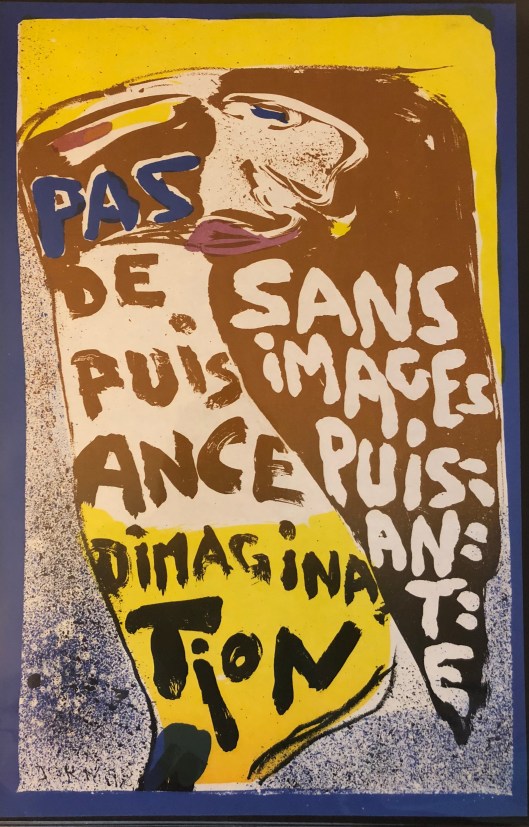 PAS
DE
PUIS
ANCE
DIMAGINA
TION
SANS
iMAGES
PUIS=
AN=
T=
E